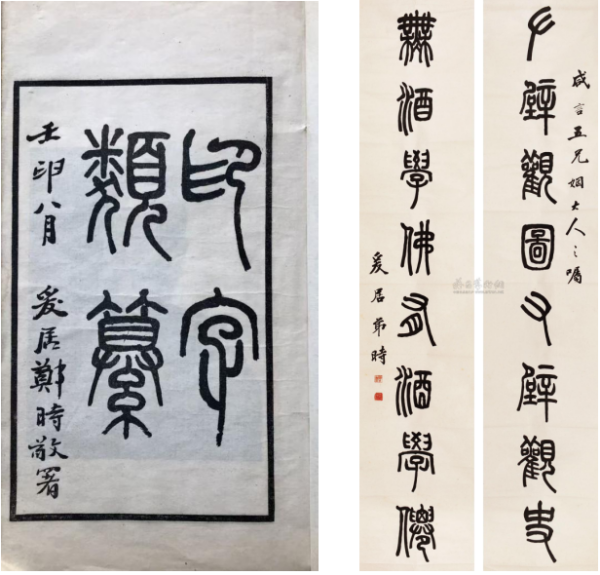 印字
類纂
壬卯八月 爰居鄭時敬署
咸言五兄姻大人之嘱
𠂇壁觀圖又壁觀史
無酒學佛有酒學僊
爰居弟時